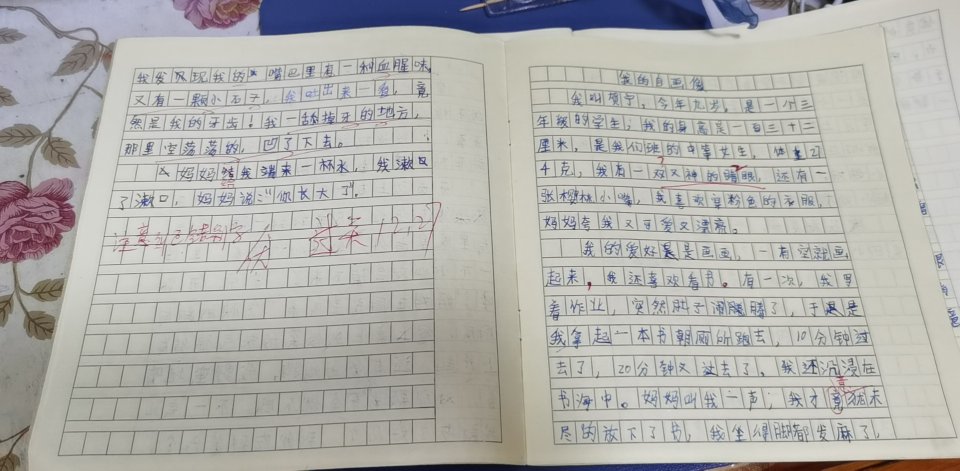 我发现我的嘴巴里有一种血腥味,
又有一颗小石子,我吐出来一看,竟
然是我的牙齿!我一舔掉牙的地方,
那里空荡荡的,凹了下去。
妈妈给我端来一杯水,我漱口
了漱口,妈妈说:“你长大了”。
注意自己错别字 优 12.27
我的自画像
我叫贺宁,今年九岁,是一个三
年级的学生;我的身高是一百三十二
厘米,是我们班的中等女生,体重2
4克,我有一双又神的眼,还有一
张樱桃小嘴,我喜欢穿粉色的衣服,
妈妈夸我又可爱又漂亮。
我的爱好是画画,一有空就画
起来,我还喜欢看书。有一次,我写
着作业,突然肚子闹腾了,于是
我拿起一本书朝厕所跑去,10分钟过
去了,20分钟又过去了,我还沉浸在
书海中。妈妈叫我一声;我才意犹未
尽的放下了书,我坐得脚都发麻了,